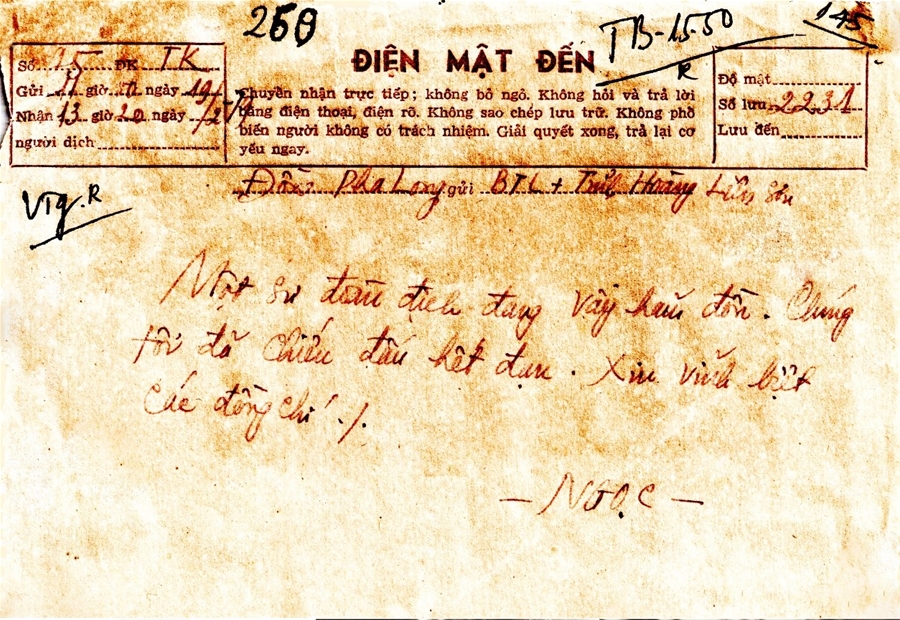 260
TB-1550
145
R
Số 15 ĐK TK
Gửi 11 giờ 10 ngày 19/2
Nhận 13 giờ 20 ngày
người dịch
ĐIỆN MẬT ĐẾN
Chuyển nhận trực tiếp; không bỏ ngỏ. Không hỏi và trả lời
bằng điện thoại, điện rõ. Không sao chép lưu trữ. Không phổ
biến người không có trách nhiệm. Giải quyết xong, trả lại cơ
yếu ngay.
Độ mật
Số lưu 2231
Lưu đến
Đồn: Pha Long gửi BTL + Tỉnh Hoàng Liên Sơn
VTg.R
Một sư đoàn địch đang vây hãm đồn. Chúng
tôi đã chiến đấu hết đạn. Xin vĩnh biệt
các đồng chí ./.
— NGỌC —